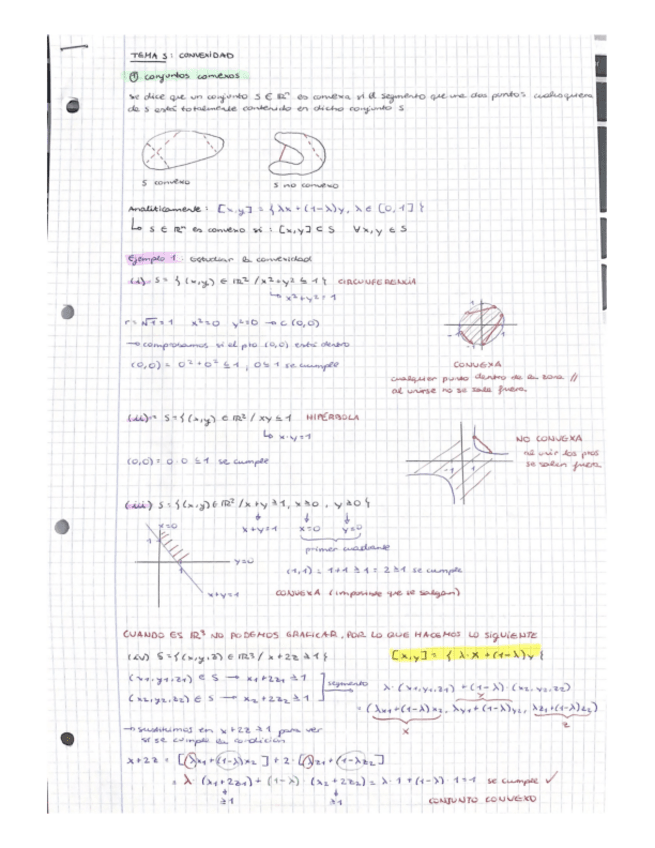 TEMA 5: CONVEXIDAD
① conjuntos convexos
se dice que un conjunto S ∈ ℝⁿ es convexo si el segmento que une dos puntos cualesquiera
de S está totalmente contenido en dicho conjunto S.
S convexo
S no convexo
Analíticamente: [x,y] = {λx + (1-λ)y, λ ∈ [0,1]}
↳ S ∈ ℝⁿ es convexo si: [x,y] ⊂ S ∀x,y ∈ S
Ejemplo 1: estudiar la convexidad
(i) S = {(x,y) ∈ ℝ² / x²+y² ≤ 1} CIRCUNFERENCIA
↳ x²+y² = 1
r = √1 = 1 x²=0 y²=0 → C (0,0)
→ comprobamos si el pto (0,0) está dentro
(0,0) = 0²+0² ≤ 1, 0 ≤ 1 se cumple
1
CONVEXA
cualquier punto dentro de la zona //
al unirse no se sale fuera.
(ii) S = {(x,y) ∈ ℝ² / xy ≤ 1 HIPÉRBOLA
↳ x·y = 1
(0,0) = 0·0 ≤ 1 se cumple
-1 1
NO CONVEXA
al unir los ptos
se salen fuera
(iii) S = {(x,y) ∈ ℝ² / x+y ≥ 1, x ≥ 0, y ≥ 0}
x+y=1 x=0 y=0
primer cuadrante
(1,1) = 1+1 ≥ 1 = 2 ≥ 1 se cumple
CONVEXA (imposible que se salgan)
x=0
1
y=0
1
x+y=1
CUANDO ES ℝ³ NO PODEMOS GRAFICAR, POR LO QUE HACEMOS LO SIGUIENTE
(iv) S = {(x,y,z) ∈ ℝ³ / x+2z ≥ 1} [x,y] = {λ·x + (1-λ)y}
(x1,y1,z1) ∈ S → x1+2z1 ≥ 1
(x2,y2,z2) ∈ S → x2+2z2 ≥ 1
segmento
λ·(x1,y1,z1) + (1-λ)·(x2,y2,z2)
= (λx1+(1-λ)x2, λy1+(1-λ)y2, λz1+(1-λ)z2)
x y z
→ sustituimos en x+2z ≥ 1 para ver
si se cumple la condición
x+2z = [λx1+(1-λ)x2] + 2·[λz1+(1-λ)z2]
= λ·(x1+2z1) + (1-λ)·(x2+2z2) = λ·1+(1-λ)·1=1 se cumple ✓
≥1 ≥1
CONJUNTO CONVEXO